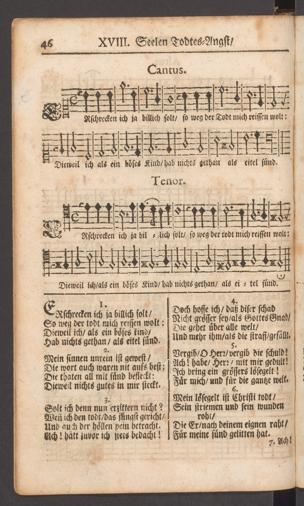 46 XVIII. Seelen Todtes-Angst/
Cantus.
ERschrecken ich ja billich solt/ so weg der Todt mich reissen wolt:
Dieweil ich als ein böses Kind/ hab nichts gethan als eitel sünd.
Tenor.
ERschrecken ich ja bil - lich solt/ so weg der todt mich reissen wolt:
Dieweil ich/als ein böses kind/ hab nichts gethan/ als ei - tel sünd.
1.
ERschrecken ich ja billich solt/
So weg der todt mich reissen wolt:
Dieweil ich/ als ein böses kind/
Hab nichts gethan/ als eitel sünd.
2.
Mein sinnen unrein ist gewest/
Die wort auch waren nit aufs best;
Die thaten all mit sünd befleckt:
Dieweil nichts gutes in mir steckt.
3.
Solt ich denn nun erzittern nicht?
Weñ ich den todt/das süngst gericht/
Und auch der höllen pein betracht.
Ach! hätt zuvor ich bedacht!
4.
Doch hoffe ich/ daß diser schad
Nicht grösser sey/als Gottes Gnad/
Die gehet über alle welt/
Und mehr ihm/als die straff/gefällt.
5.
Vergib/O Herr/ vergib die schuld!
Ach! habe/ Herr/ mit mir gedult!
Ich bring ein grössers lösegelt!
Für mich/ und für die gantze welt.
6.
Mein lösegelt ist Christi todt/
Sein striemen und sein wunden
roht/
Die Er/nach deinem eignen raht/
Für meine sünd gelitten hat.
7. Ach!